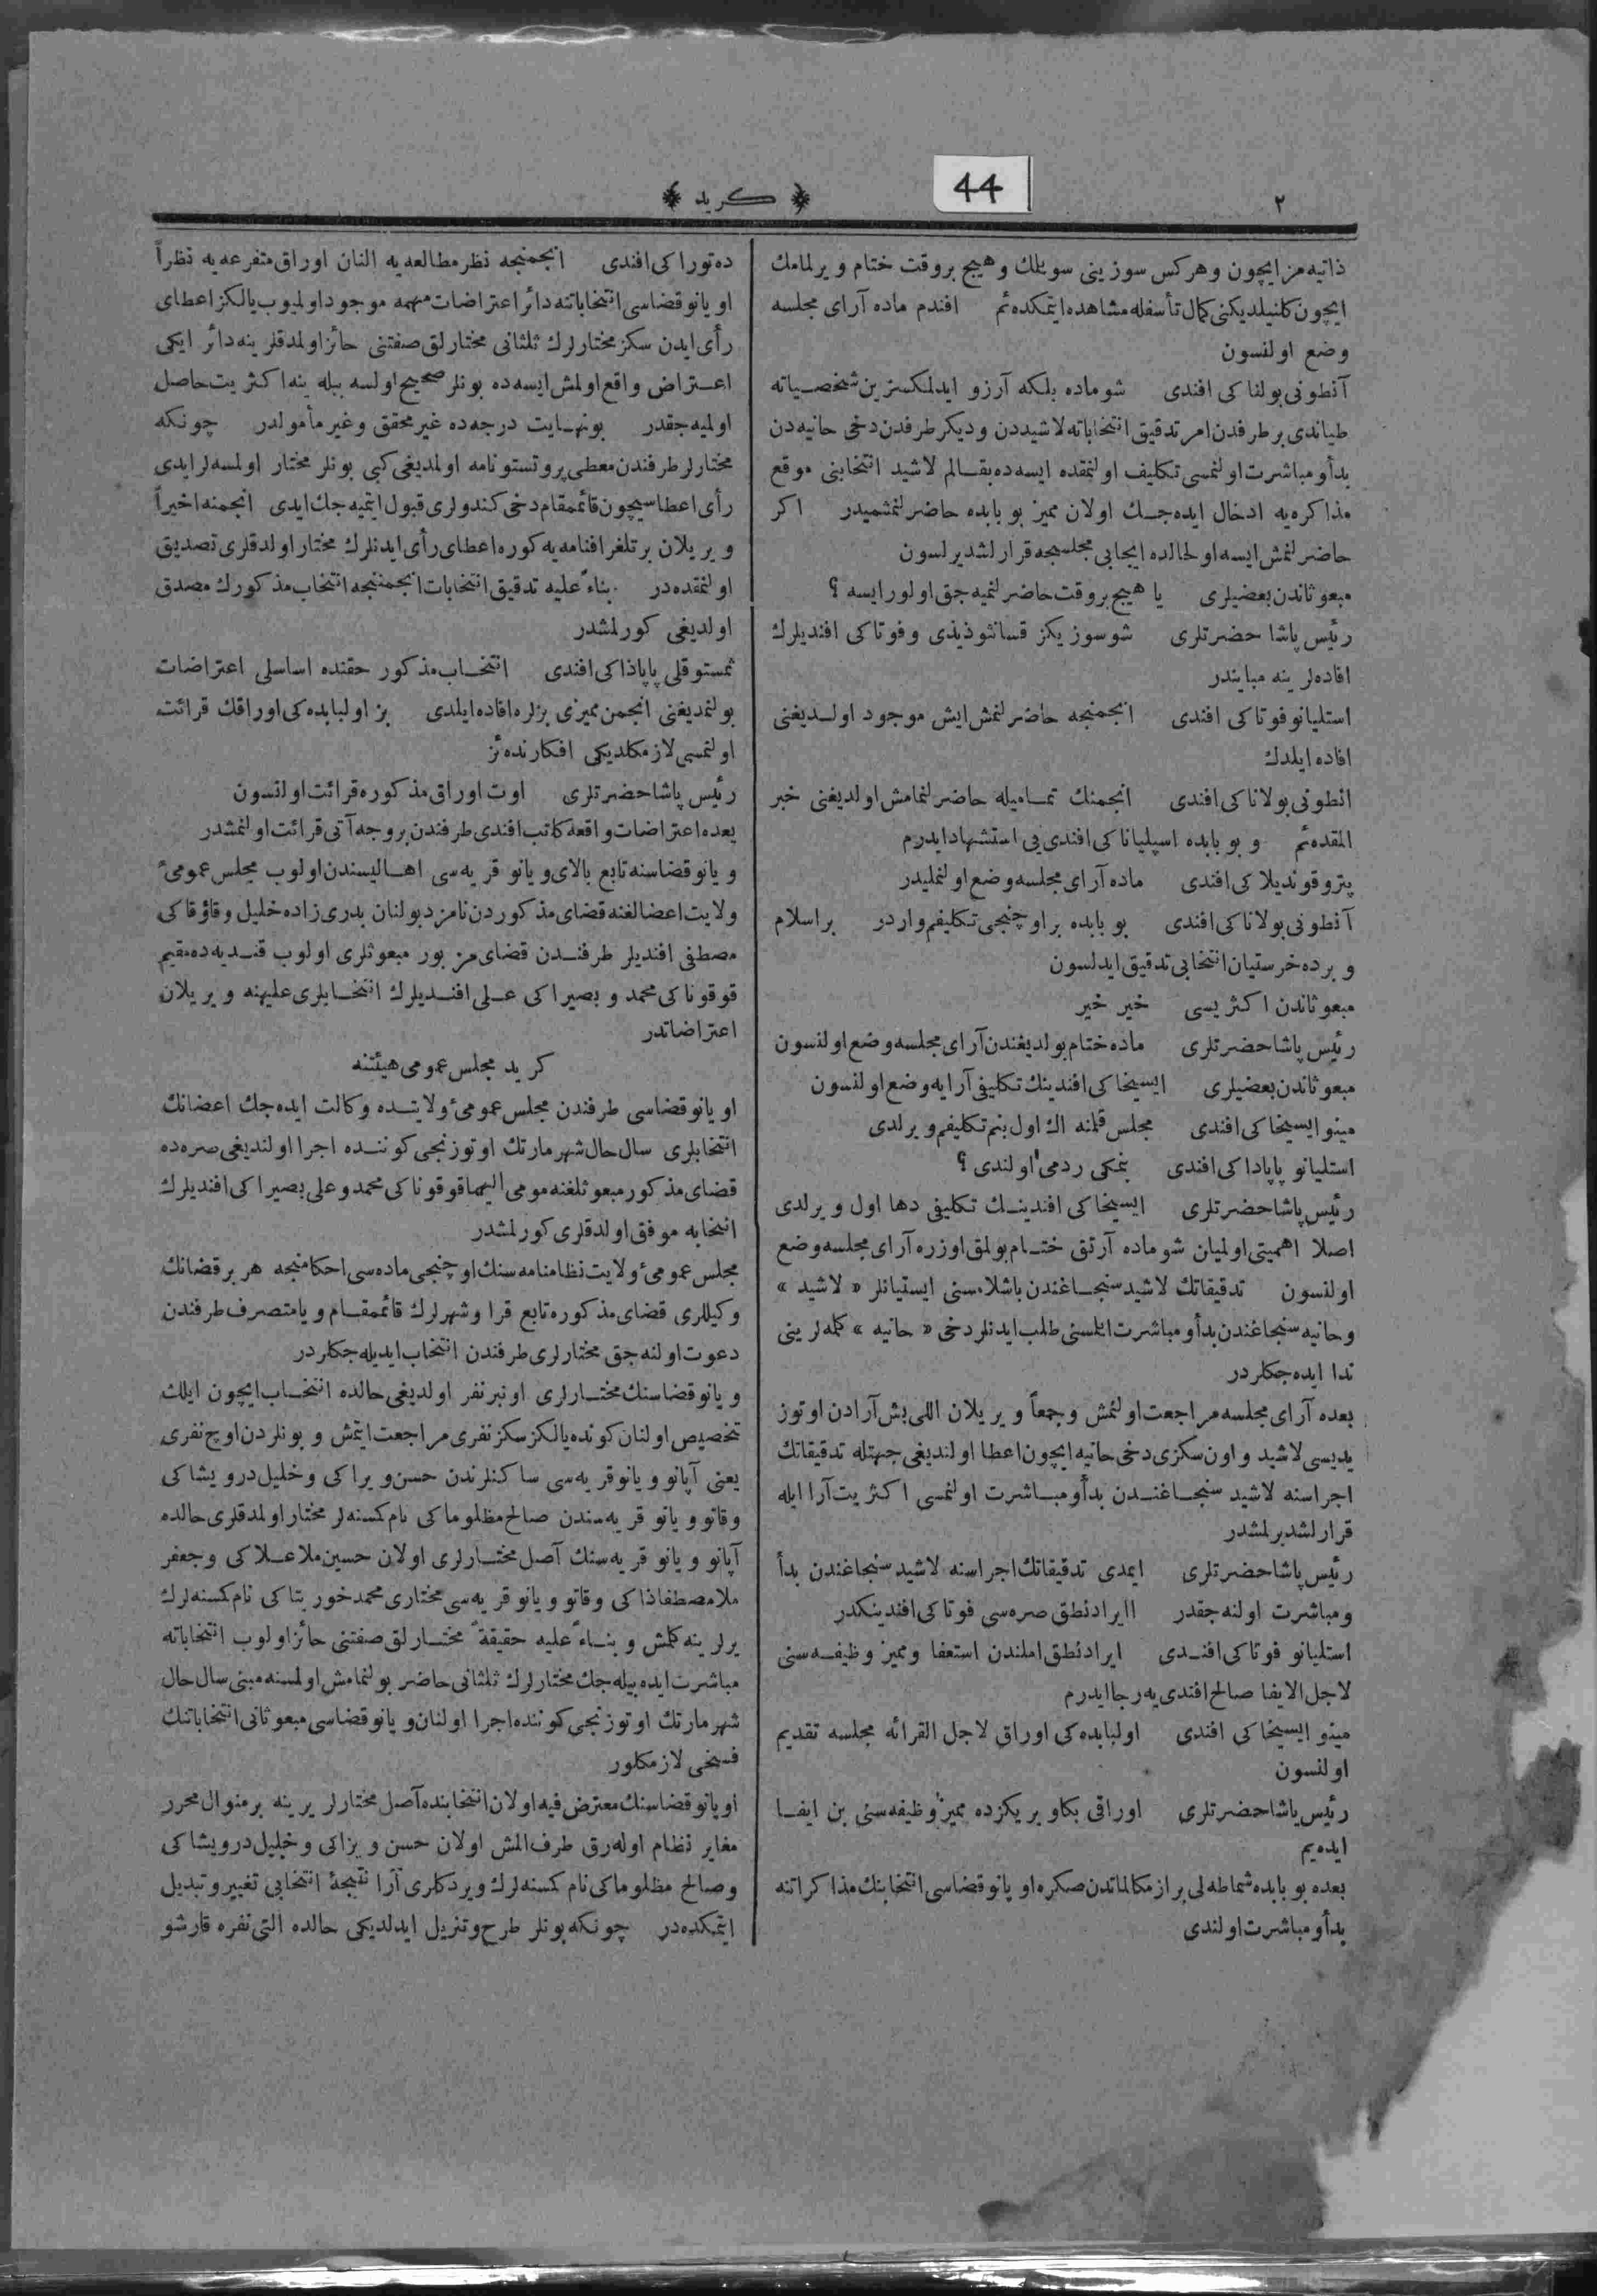 ٢
44
﴿ كريد ﴾
ذاتيه‌مز ايچون و هركس سوزينى سويلمك و هيچ بروقت ختام ويرلمامك
ايچون كلنيلديكنى كمال تأسفله مشاهده ايتمكده‌ئم افندم ماده آراى مجلسه
وضع اولنسون
آنطونى بولناكى افندى شو ماده بلكه آرزو ايدلمكسزين شخصياته
طياندى بر طرفدن امر تدقيق انتخاباته لاشيددن و ديكر طرفدن دخى حانيه‌دن
بدأ و مباشرت اولنمسى تكليف اولنمقده ايسه‌ده بقالم لاشيد انتخابنى موقع
مذاكره‌يه ادخال ايده‌جك اولان مميز بو بابده حاضرلنمشميدر اكر
حاضرلنمش ايسه اولحالده ايجابى مجلسجه قرارلشديرلسون
مبعوثاندن بعضيلرى يا هيچ بر وقت حاضرلنميه‌جق اولور ايسه ؟
رئيس پاشا حضرتلرى شو سوزيكز قسانثوذيذى و فوتاكى افنديلرك
افاده‌لرينه مبايندر
استليانو فوتاكى افندى انجمنجه حاضرلنمش ايش موجود اولديغنى
افاده ايلدك
انطونى بولاناكى افندى انجمنك تماميله حاضرلنمامش اولديغنى خبر
المقده‌ئم و بو بابده اسپلياناكى افندى‌يى استشهاد ايدرم
پترو قونديلاكى افندى ماده آراى مجلسه وضع اولنمليدر
آنطونى بولاناكى افندى بو بابده بر اوچنجى تكليفم واردر بر اسلام
و برده خرستيان انتخابى تدقيق ايدلسون
مبعوثاندن اكثريسى خير خير
رئيس پاشا حضرتلرى ماده ختام بولديغندن آراى مجلسه وضع اولنسون
مبعوثاندن بعضيلرى ايسيخاكى افندينك تكليفى آرايه وضع اولنسون
مينو ايسيخاكى افندى مجلس قلمنه اك اول بنم تكليفم ويرلدى
استليانو پاپاداكى افندى بنمكى ردمى اولندى ؟
رئيس پاشا حضرتلرى ايسيخاكى افندينك تكليفى دها اول ويرلدى
اصلا اهميتى اولميان شو ماده آرتق ختام بولمق اوزره آراى مجلسه وضع
اولنسون تدقيقاتك لاشيد سنجاغندن باشلامسنى ايستيانلر « لاشيد »
و حانيه سنجاغندن بدأ و مباشرت ايلمسنى طلب ايدنلر دخى « حانيه » كلمه‌لرينى
ندا ايده‌جكلردر
بعده آراى مجلسه مراجعت اولنمش و جمعاً ويريلان اللى بش آرادن اوتوز
يديسى لاشيد و اون سكزى دخى حانيه ايچون اعطا اولنديغى جهتله تدقيقاتك
اجراسنه لاشيد سنجاغندن بدأ و مباشرت اولنمسى اكثريت آرا ايله
قرارلشديرلمشدر
رئيس پاشا حضرتلرى ايمدى تدقيقاتك اجراسنه لاشيد سنجاغندن بدأ
و مباشرت اولنه‌جقدر ايراد نطق صره‌سى فوتاكى افندينكدر
استليانو فوتاكى افندى ايراد نطق املندن استعفا و مميز وظيفه‌سنى
لاجل الايفا صالح افندى‌يه رجا ايدرم
مينو ايسيخاكى افندى اولبابده‌كى اوراق لاجل القرائه مجلسه تقديم
اولنسون
رئيس پاشا حضرتلرى اوراقى بكا ويريكزده مميز وظيفه‌سنى بن ايفا
ايده‌يم
بعده بو بابده شماطه‌لى بر از مكالماتدن صكره اويانو قضاسى انتخابنك مذاكراتنه
بدأ و مباشرت اولندى
ده‌توراكى افندى انجمنجه نظر مطالعه‌يه النان اوراق متفرعه‌يه نظراً
اويانو قضاسى انتخاباتنه دائر اعتراضات مهمه موجود اولميوب يالكز اعطاى
رأى ايدن سكز مختارلرك ثلثانى مختارلق صفتنى حائز اولمدقلرينه دائر ايكى
اعتراض واقع اولمش ايسه‌ده بونلر صحيح اولسه بيله ينه اكثريت حاصل
اولميه‌جقدر بو نهايت درجه‌ده غير محقق و غير مأمولدر چونكه
مختارلر طرفندن معطى پروتستونامه اولمديغى كبى بونلر مختار اولمسه‌لرايدى
رأى اعطاسيچون قائممقام دخى كندولرى قبول ايتميه‌جك ايدى انجمنه اخيراً
ويريلان بر تلغرافنامه‌يه كوره اعطاى رأى ايدنلرك مختار اولدقلرى تصديق
اولنمقده‌در بناءً عليه تدقيق انتخابات انجمنجه انتخاب مذكورك مصدق
اولديغى كورلمشدر
ثمستوقلى پاپاذاكى افندى انتخاب مذكور حقنده اساسلى اعتراضات
بولنمديغنى انجمن مميزى بزلره افاده ايلدى بز اولبابده‌كى اوراقك قرائت
اولنمسى لازمكلديكى افكارنده‌ئز
رئيس پاشا حضرتلرى اوت اوراق مذكوره قرائت اولنسون
بعده اعتراضات واقعه كاتب افندى طرفندن بروجه آتى قرائت اولنمشدر
ويانو قضاسنه تابع بالاى ويانو قريه‌سى اهاليسندن اولوب مجلس عمومئ
ولايت اعضالغنه قضاى مذكوردن نامزد بولنان بدرى زاده خليل و قاؤقاكى
مصطفى افنديلر طرفندن قضاى مزبور مبعوثلرى اولوب قنديه‌ده مقيم
قوقوناكى محمد و بصيراكى على افنديلرك انتخابلرى عليهنه ويريلان
اعتراضاتدر
كريد مجلس عمومى هيئتنه
اويانو قضاسى طرفندن مجلس عمومئ ولايتده وكالت ايده‌جك اعضانك
انتخابلرى سال حال شهر مارتك اوتوزنجى كوننده اجرا اولنديغى صره‌ده
قضاى مذكور مبعوثلغنه مومى اليهما قوقوناكى محمد و على بصيراكى افنديلرك
انتخابه موفق اولدقلرى كورلمشدر
مجلس عمومئ ولايت نظامنامه‌سنك اوچنجى ماده‌سى احكامنجه هر بر قضانك
وكيللرى قضاى مذكوره تابع قرا و شهرلرك قائممقام ويا متصرف طرفندن
دعوت اولنه‌جق مختارلرى طرفندن انتخاب ايديله‌جكلردر
ويانو قضاسنك مختارلرى اونبر نفر اولديغى حالده انتخاب ايچون ايلك
تخصيص اولنان كونده يالكز سكز نفرى مراجعت ايتمش و بونلردن اوچ نفرى
يعنى آپانو ويانو قريه‌سى ساكنلرندن حسن ويراكى و خليل درويشاكى
و قاتو ويانو قريه‌سندن صالح مظلوماكى نام كسنه‌لر مختار اولمدقلرى حالده
آپانو ويانو قريه‌سنك آصل مختارلرى اولان حسين ملاعلاكى و جعفر
ملامصطفاذاكى و قاتو ويانو قريه‌سى مختارى محمد خوربتاكى نام كسنه‌لرك
يرلرينه كلمش و بناءً عليه حقيقةً مختارلق صفتنى حائز اولوب انتخاباته
مباشرت ايده‌بيله‌جك مختارلرك ثلثانى حاضر بولنمامش اولمسنه مبنى سال حال
شهر مارتك اوتوزنجى كوننده اجرا اولنان ويانو قضاسى مبعوثانى انتخاباتنك
فسخى لازمكلور
اويانو قضاسنك معترض فيه اولان انتخابنده آصل مختارلر يرينه بر منوال محرر
مغاير نظام اوله‌رق طرف المش اولان حسن ويراكى و خليل درويشاكى
و صالح مظلوماكى نام كسنه‌لرك ويردكلرى آرا نتيجهٔ انتخابى تغيير و تبديل
ايتمكده‌در چونكه بونلر طرح و تنزيل ايدلديكى حالده التى نفره قارشو